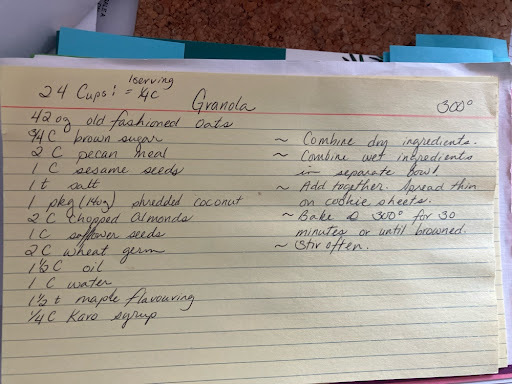 1 serving
24 Cups: = ¼C
Granola
300°
42 oz old fashioned Oats
¾ C brown sugar
2 C pecan meal
1 C sesame seeds
1 t salt
1 pkg (14oz) shredded coconut
2 C chopped almonds
1 C safflower seeds
2 C wheat germ
1½ C oil
1 C water
1½ t maple flavouring
¼ C Karo syrup
~ Combine dry ingredients.
~ Combine wet ingredients
in separate bowl.
~ Add together. Spread thin
on cookie sheets.
~ Bake @ 300° for 30
minutes or until browned.
~ Stir often.